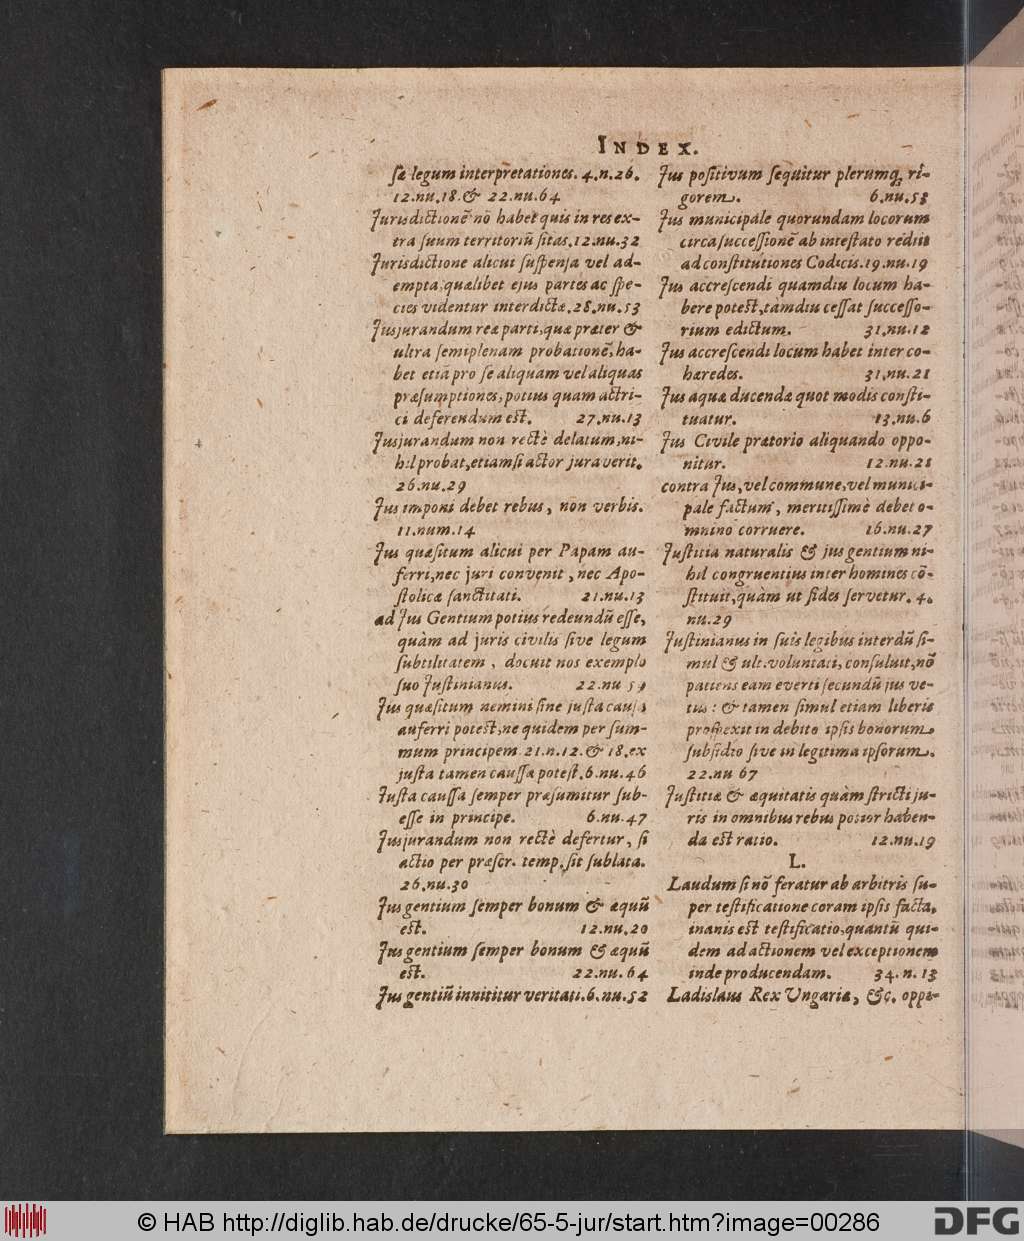 INDEX.
ſæ legum interpretationes. 4. n. 26.
12. nu. 18. & 22. nu. 64
Jurisdictionē nō habet quis in res ex-
tra ſuum territoriū ſitas. 12. nu. 32
Jurisdictione alicui ſuſpenſa vel ad-
empta, quælibet ejus partes ac ſpe-
cies videntur interdictæ. 28. nu. 53
Jusjurandum reæ parti, quæ præter &
ultra ſemiplenam probationē, ha-
bet etiā pro ſe aliquam vel aliquas
præſumptiones, potius quam actri-
ci deferendum eſt. 27. nu. 13
Jusjurandum non rectè delatum, ni-
hil probat, etiamſi actor juraverit.
26. nu. 29
Jus imponi debet rebus, non verbis.
11. num. 14
Jus quæſitum alicui per Papam au-
ferri, nec juri convenit, nec Apo-
ſtolicæ ſanctitati. 21. nu. 13
ad Jus Gentium potius redeundū eſſe,
quàm ad juris civilis ſive legum
ſubtilitatem, docuit nos exemplo
ſuo Juſtinianus. 22. nu 59
Jus quæſitum nemini ſine juſta cauſa
auferri poteſt, ne quidem per ſum-
mum principem 21. n. 12. & 18. ex
juſta tamen cauſſa poteſt. 6. nu. 46
Juſta cauſſa ſemper præſumitur ſub-
eſſe in principe. 6. nu. 47
Jusjurandum non rectè defertur, ſi
actio per præſcr. temp. ſit ſublata.
26. nu. 30
Jus gentium ſemper bonum & æquū
eſt. 12. nu. 20
Jus gentium ſemper bonum & æquū
eſt. 22. nu. 64
Jus gentiū innititur veritati. 6. nu. 52
Jus poſitivum ſequitur plerumq; ri-
gorem. 6. nu. 53
Jus municipale quorundam locorum
circa ſucceſſionē ab inteſtato rediit
ad conſtitutiones Codicis. 19. nu. 19
Jus accreſcendi quamdiu locum ha-
bere poteſt, tamdiu ceſſat ſucceſſo-
rium edictum. 31. nu. 12
Jus accreſcendi locum habet inter co-
hæredes. 31. nu. 21
Jus aquæ ducendæ quot modis conſti-
tuatur. 13. nu. 6
Jus Civile prætorio aliquando oppo-
nitur. 12. nu. 21
contra Jus, vel commune, vel munici-
pale factum, meritiſſimè debet o-
mnino corruere. 16. nu. 27
Juſtitia naturalis & jus gentium ni-
hil congruentius inter homines cō-
ſtituit, quàm ut fides ſervetur. 4.
nu. 29
Juſtinianus in ſuis legibus interdū ſi-
mul & ult. voluntati, conſuluit, nō
patiens eam everti ſecundū jus ve-
tus: & tamen ſimul etiam liberis
proſpexit in debito ipſis bonorum
ſubſidio ſive in legitima ipſorum.
22. nu 67
Juſtitiæ & æquitatis quàm ſtricti ju-
ris in omnibus rebus potior haben-
da eſt ratio. 12. nu. 19
L.
Laudum ſi nō feratur ab arbitris ſu-
per teſtificatione coram ipſis facta,
inanis eſt teſtificatio, quantū qui-
dem ad actionem vel exceptionem
inde producendam. 34. n. 13
Ladislaus Rex Ungariæ, &c. oppi-
© HAB http://diglib.hab.de/drucke/65-5-jur/start.htm?image=00286
DFG